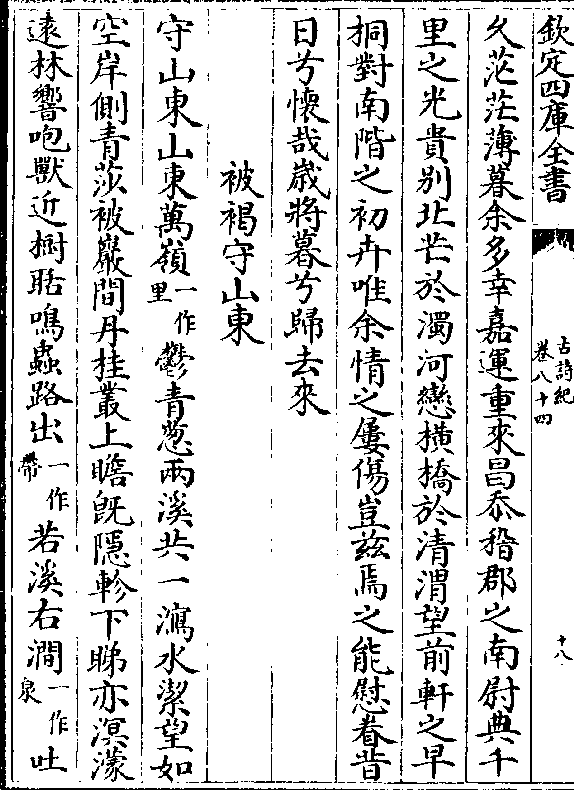 欽定四庫全書
古詩紀
卷八十四
十八
久茫茫薄暮余多幸嘉運重來昌忝稽郡之南尉典千
里之光貴别北芒於濁河戀横橋於清渭望前軒之早
桐對南階之初卉唯余情之屢傷豈兹焉之能慰眷昔
日兮懷哉歲將暮兮歸去來
被褐守山東
守山東山東萬嶺一作里鬱青葱兩溪共一瀉水潔望如
空岸側青莎被巖間丹桂叢上瞻旣隱軫下睇亦溟濛
遠林響咆獸近樹聒鳴蟲路出一作帶若溪右澗一作泉吐